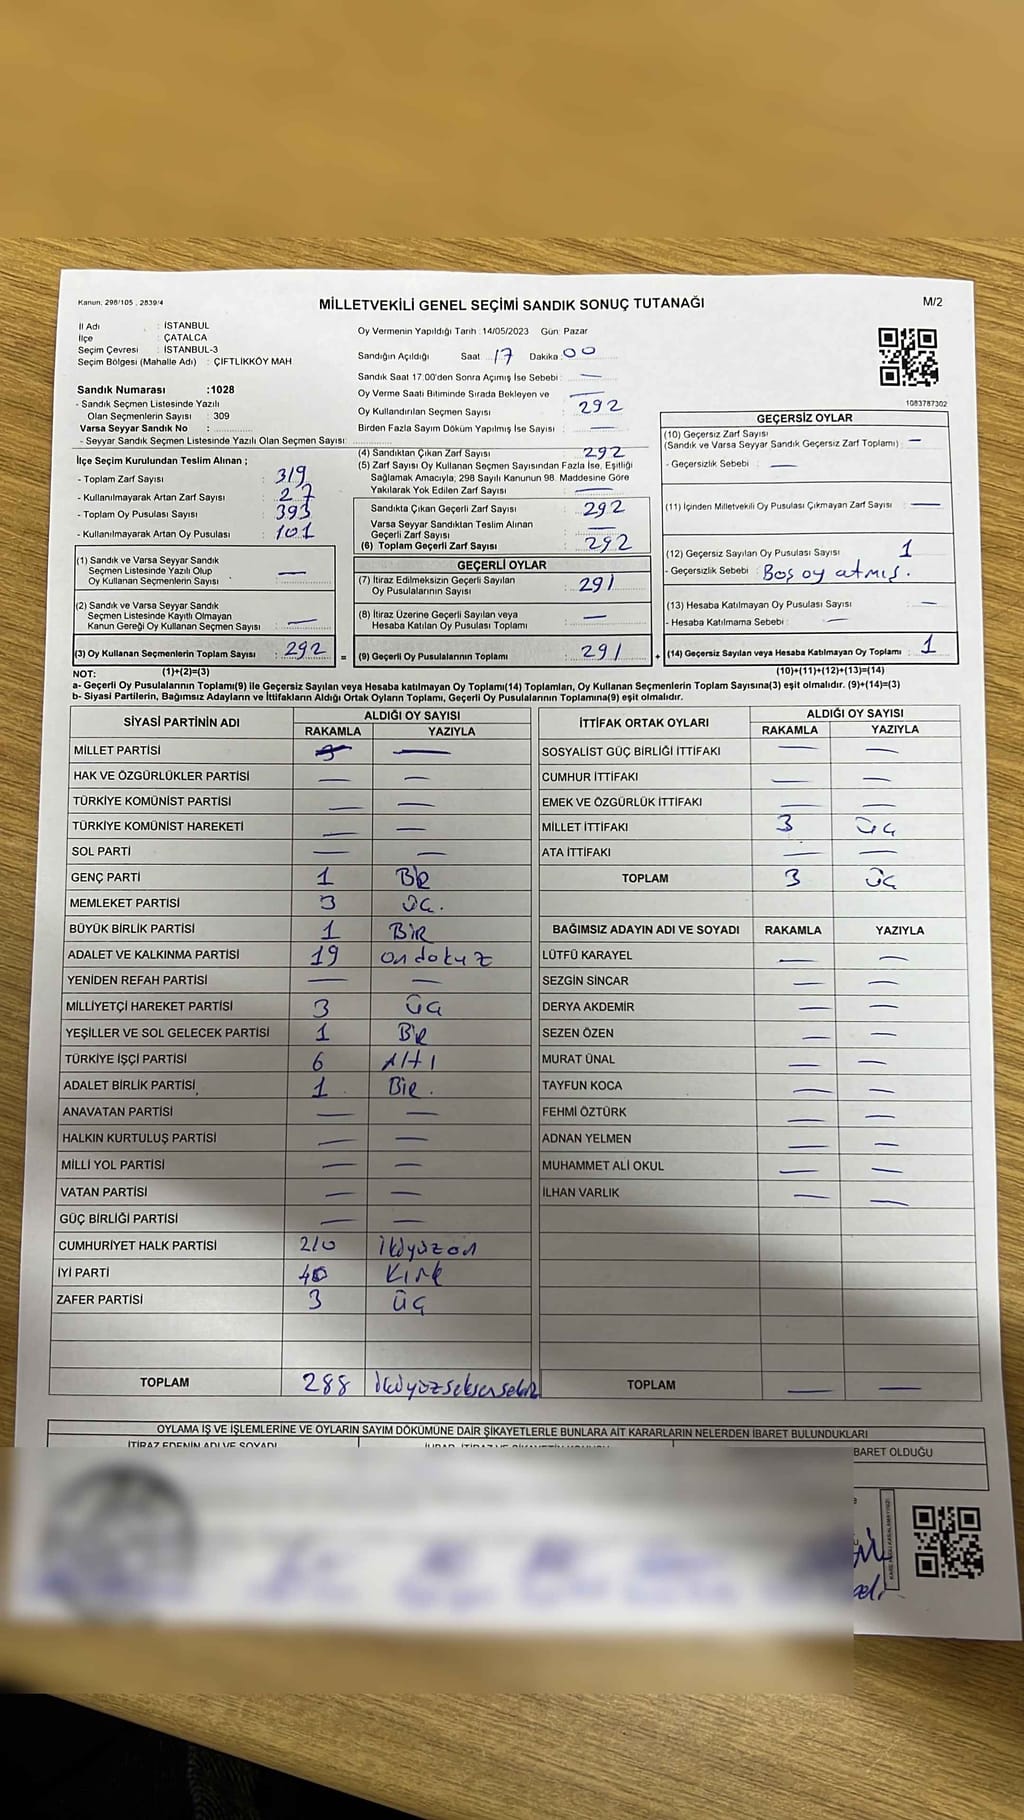 Kanun, 298/105 , 2839/4
MİLLETVEKİLİ GENEL SEÇİMİ SANDIK SONUÇ TUTANAĞI
M/2
İl Adı : İSTANBUL
İlçe : ÇATALCA
Seçim Çevresi : İSTANBUL-3
Seçim Bölgesi (Mahalle Adı) : ÇİFTLİKKÖY MAH
Sandık Numarası :1028
- Sandık Seçmen Listesinde Yazılı
Olan Seçmenlerin Sayısı : 309
Varsa Seyyar Sandık No :
- Seyyar Sandık Seçmen Listesinde Yazılı Olan Seçmen Sayısı:
Oy Vermenin Yapıldığı Tarih :14/05/2023 Gün: Pazar
Sandığın Açıldığı Saat 17 Dakika 00
Sandık Saat 17:00'den Sonra Açımış İse Sebebi: —
Oy Verme Saati Bitiminde Sırada Bekleyen ve —
Oy Kullandırılan Seçmen Sayısı : 292
Birden Fazla Sayım Döküm Yapılmış İse Sayısı : —
1083787302
İlçe Seçim Kurulundan Teslim Alınan ;
- Toplam Zarf Sayısı : 319
- Kullanılmayarak Artan Zarf Sayısı : 27
- Toplam Oy Pusulası Sayısı : 393
- Kullanılmayarak Artan Oy Pusulası : 101
(1) Sandık ve Varsa Seyyar Sandık
Seçmen Listesinde Yazılı Olup
Oy Kullanan Seçmenlerin Sayısı : —
(2) Sandık ve Varsa Seyyar Sandık
Seçmen Listesinde Kayıtlı Olmayan
Kanun Gereği Oy Kullanan Seçmen Sayısı : —
(3) Oy Kullanan Seçmenlerin Toplam Sayısı : 292 =
(4) Sandıktan Çıkan Zarf Sayısı : 292
(5) Zarf Sayısı Oy Kullanan Seçmen Sayısından Fazla İse, Eşitliği
Sağlamak Amacıyla; 298 Sayılı Kanunun 98. Maddesine Göre
Yakılarak Yok Edilen Zarf Sayısı : —
Sandıkta Çıkan Geçerli Zarf Sayısı : 292
Varsa Seyyar Sandıktan Teslim Alınan
Geçerli Zarf Sayısı : —
(6) Toplam Geçerli Zarf Sayısı : 292
GEÇERLİ OYLAR
(7) İtiraz Edilmeksizin Geçerli Sayılan
Oy Pusulalarının Sayısı : 291
(8) İtiraz Üzerine Geçerli Sayılan veya
Hesaba Katılan Oy Pusulaları Toplamı : —
(9) Geçerli Oy Pusulalarının Toplamı : 291 +
GEÇERSİZ OYLAR
(10) Geçersiz Zarf Sayısı
(Sandık ve Varsa Seyyar Sandık Geçersiz Zarf Toplamı) : —
- Geçersizlik Sebebi : —
(11) İçinden Milletvekili Oy Pusulası Çıkmayan Zarf Sayısı : —
(12) Geçersiz Sayılan Oy Pusulası Sayısı 1
- Geçersizlik Sebebi : Boş oy atmış.
(13) Hesaba Katılmayan Oy Pusulası Sayısı : —
- Hesaba Katılmama Sebebi : —
(14) Geçersiz Sayılan veya Hesaba Katılmayan Oy Toplamı : 1
NOT: (1)+(2)=(3) (10)+(11)+(12)+(13)=(14)
a- Geçerli Oy Pusulalarının Toplamı(9) İle Geçersiz Sayılan veya Hesaba katılmayan Oy Toplamı(14) Toplamları, Oy Kullanan Seçmenlerin Toplam Sayısına(3) eşit olmalıdır. (9)+(14)=(3)
b- Siyasi Partilerin, Bağımsız Adayların ve İttifakların Aldığı Ortak Oyların Toplamı, Geçerli Oy Pusulalarının Toplamına(9) eşit olmalıdır.
SİYASİ PARTİNİN ADI ALDIĞI OY SAYISI
RAKAMLA YAZIYLA
MİLLET PARTİSİ —
HAK VE ÖZGÜRLÜKLER PARTİSİ — —
TÜRKİYE KOMÜNİST PARTİSİ — —
TÜRKİYE KOMÜNİST HAREKETİ — —
SOL PARTİ — —
GENÇ PARTİ 1 Bir
MEMLEKET PARTİSİ 3 üç.
BÜYÜK BİRLİK PARTİSİ 1 Bir
ADALET VE KALKINMA PARTİSİ 19 on dokuz
YENİDEN REFAH PARTİSİ — —
MİLLİYETÇİ HAREKET PARTİSİ 3 üç
YEŞİLLER VE SOL GELECEK PARTİSİ 1 Bir
TÜRKİYE İŞÇİ PARTİSİ 6 Altı
ADALET BİRLİK PARTİSİ 1 Bir.
ANAVATAN PARTİSİ — —
HALKIN KURTULUŞ PARTİSİ — —
MİLLİ YOL PARTİSİ — —
VATAN PARTİSİ — —
GÜÇ BİRLİĞİ PARTİSİ — —
CUMHURİYET HALK PARTİSİ 210 ikiyüzon
İYİ PARTİ 40 Kırk
ZAFER PARTİSİ 3 üç
TOPLAM 288 ikiyüzseksensekiz
İTTİFAK ORTAK OYLARI ALDIĞI OY SAYISI
RAKAMLA YAZIYLA
SOSYALİST GÜÇ BİRLİĞİ İTTİFAKI — —
CUMHUR İTTİFAKI — —
EMEK VE ÖZGÜRLÜK İTTİFAKI — —
MİLLET İTTİFAKI 3 üç
ATA İTTİFAKI — —
TOPLAM 3 üç
BAĞIMSIZ ADAYIN ADI VE SOYADI RAKAMLA YAZIYLA
LÜTFÜ KARAYEL — —
SEZGİN SİNCAR — —
DERYA AKDEMİR — —
SEZEN ÖZEN — —
MURAT ÜNAL — —
TAYFUN KOCA — —
FEHMİ ÖZTÜRK — —
ADNAN YELMEN — —
MUHAMMET ALİ OKUL — —
İLHAN VARLIK — —
TOPLAM — —
OYLAMA İŞ VE İŞLEMLERİNE VE OYLARIN SAYIM DÖKÜMÜNE DAİR ŞİKAYETLERLE BUNLARA AİT KARARLARIN NELERDEN İBARET BULUNDUKLARI
İTİRAZ EDENİN ADI VE SOYADI
BARET OLDUĞU